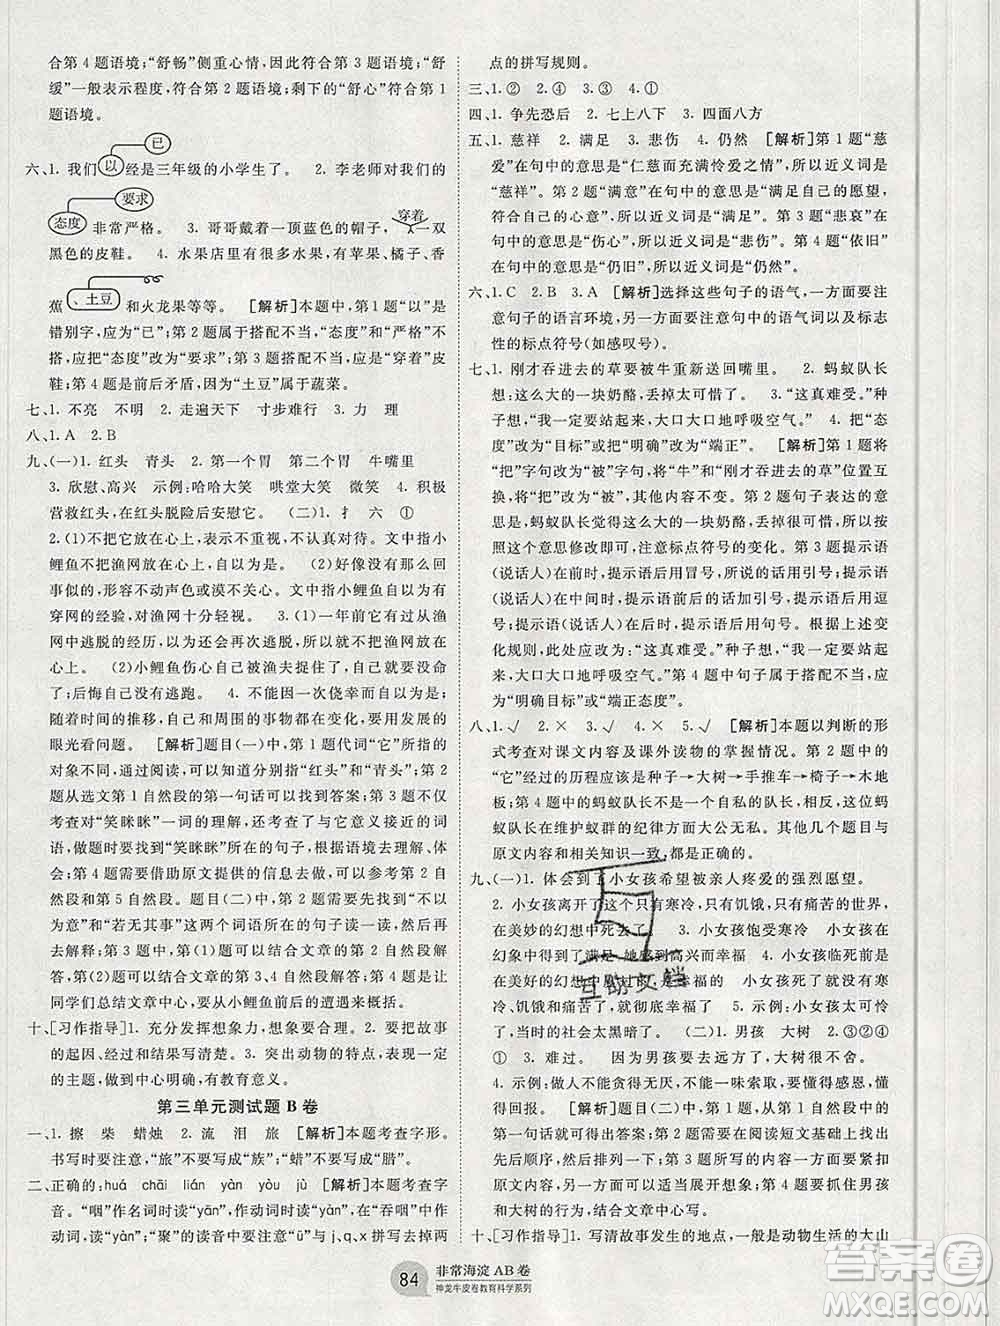 合第 4 题语境;“舒畅”侧重心情,符合第 3 题语境;“舒
缓”一般表示程度,符合第 2 题语境;剩下的“舒心”符合第 1
题语境。
已
六、1. 我们以经是三年级的小学生了。 2. 李老师对我们的
要求
态度非常严格。 3. 哥哥戴着一顶蓝色的帽子,穿着一双
黑色的皮鞋。 4. 水果店里有很多水果,有苹果、橘子、香
蕉、土豆和火龙果等等。 [解析]本题中,第 1 题“以”是
错别字,应为“已”;第 2 题属于搭配不当,“态度”和“严格”不
搭,应把“态度”改为“要求”;第 3 题搭配不当,应是“穿着”皮
鞋;第 4 题是前后矛盾,“土豆”属于蔬菜。
七、1. 不亮 不明 2. 走遍天下 寸步难行 3. 力 理
八、1. A 2. B
九、(一)1. 红头 青头 2. 第一个胃 第二个胃 牛嘴里
3. 欣慰、高兴 示例:哈哈大笑 哄堂大笑 微笑 4. 积极
营救红头,在红头脱险后安慰它。 (二)1. 扌 六 ①
2. (1)不把它放在心上,表示不重视、不关注。文中指小
鲤鱼把渔网放在心上,很重视。 (2)好像没有那么一回
事的样子,形容不动声色或漠不关心。文中指小鲤鱼有
穿网的经验,对渔网十分轻视。 3. (1)一年前它有过从渔
网中逃脱的经历,以为还会再次逃脱,所以不把渔网放在
心上。 (2)小鲤鱼伤心自己被渔夫捉住了,就要被杀死
了;后悔自己没有逃跑。 4. 不能因一次侥幸而麻痹大意。
随着时间的推移,自己和周围的事物都在变化,要用发展的
眼光看问题。 [解析]题目(一)中,第 1 题代词“它”所指的
对象,通过阅读,可以归结为是指“红头”和“青头”。第 2
题从选文第 1 自然段的第一句话可以找到答案。第 3 题不仅
考查对“笑眯眯”一词的理解,还考查与它意义接近的词
语,根据语境填写即可,主要突出“笑眯眯”的词语。第
4 题需要借助原文提供的信息来回答,可以参考第 2
自然段的内容。题目(二)中,第 2 题可以把表示“不以
为意”和“若无其事”这两个词语所在的句子读一读,再
去解释;第 3 题第(1)(2)可以结合文章的第 2 自然段
回答,第(2)可以结合文章的第 3、4 自然段;第 4 题是让
同学们总结文章中心,以小鲤鱼前后的遭遇来概括。
十、[习作指导]1. 充分发挥想象力,想象要合理。 2. 要把故事
的起因、经过和结果写清楚。 3. 突出动物的特点,表达一定
的主题,做到中心明确,有教育意义。
第三单元测试题 B 卷
一、1. 擦 柴 蜡烛 2. 流 泪 旅 [解析]本题考查字形。
书写时要注意,“旅”不要写成“族”;“蜡”不要写成“腊”。
二、正确的:huá chāi lián yàn yòu jù [解析]本题考查字
音。“咽”作名词时读“yān”,在“吞咽”中作
动词,读“yàn”;“聚”的读音中要注意 ü 与 j、q、x 拼时去掉两
点的拼写规则。
三、1. ② 2. ④ 3. ③ 4. ①
四、1. 争先恐后 2. 七上八下 3. 四面八方
五、1. 慈祥 2. 满足 3. 悲伤 4. 仍然 [解析]第 1 题“慈
爱”在句中的意思是“仁慈而充满怜爱之情”,所以近义词是
“慈祥”。第 2 题“满意”在句中的意思是“满足自己的愿望,
符合自己的心意”,所以近义词是“满足”。第 3 题“悲哀”在
句中的意思是“伤心”,所以近义词是“悲伤”。第 4 题“依旧”
在句中的意思是“仍旧”,所以近义词是“仍然”。
六、1. C 2. B 3. A [解析]选择这些句子的语气,一方面要注
意句子的语言环境,一方面要注意句中的语气词以及标志
性的标点符号(如感叹号)。
七、1. 刚才吞进去的草要被牛重新送回嘴里。 2. 蚂蚁队长
想,这么大的一块奶酪,丢掉太可惜了。 3. “这真难受。”种
子想,“我一定要站起来,大口大口地呼吸空气。” 4. 把“态
度”改为“目标”或把“明确”改为“端正”。 [解析]第 1 题
把“把”字句改为“被”字句,将“牛”和“刚才吞进去的草”位置互
换,将“把”改为“被”,其他内容不变。第 2 题句子表达的意
思是,蚂蚁队长觉得这么大的一块奶酪,丢掉很可惜,按
照这个意思修改即可,注意标点符号的变化。第 3 题提示语
(说话人)在前,提示语后用冒号,所说的话用引号;提示语
(说话人)在中间时,提示语前后的话加引号,提示语后用逗
号;提示语(说话人)在后时,提示语后用句号。根据以上变
化规则,此处应改为:“这真难受。”种子想,“我一定要站起
来,大口大口地呼吸空气。”第 4 题中句子搭配不当,应改为
“明确目标”或“端正态度”。
八、1. √ 2. × 3. √ 4. × 5. √ [解析]本题以判断的形
式考查对课文内容及课外读物的掌握情况。第 2 题中的
“它”经过的历程应该是种子→大树→手推车→椅子→木地
板;第 4 题中的蚂蚁队长不是一个自私的队长,相反,这个
蚂蚁队长在维护蚁群的纪律方面大公无私。其余的题目与
原文内容和相关知识一致,都是正确的。
九、(一)1. 体会到了小女孩希望被亲人疼爱的强烈愿望。
2. 小女孩离开了这个只有寒冷,只有饥饿,只有痛苦的世界,
在美妙的幻想中死去了。 3. 小女孩饱受寒冷 小女孩在
幻象中得到了满足,她感到高兴而幸福 4. 小女孩临死前
在美好的幻想中度过,是幸福的 小女孩死了就没有寒
冷、饥饿和痛苦了,就幸福了 5. 示例:小女孩太可怜
了,当时的社会太黑暗了。 (二)1. 男孩 大树 2. ③②④
① 3. 难过。 因为男孩要去远方了,大树舍不得他。
4. 示例:做人不能贪得无厌,不能一味索取,要懂得感恩,
懂得回报。 [解析]题目(一)中的前四个题都可以从文
中的相关句子找出答案;第 2 题要在阅读短文基础上先理
出先后顺序,然后排列一下;第 3 题所写的内容一方面要符
合文意,另一方面要适当展开想象;第 4 题可以抓住男孩
和大树的行为,结合文章中心写。
十、[习作指导]1. 写清故事发生的地点,一般是动物生活的大山
互助文档
84
非常海淀 AB 卷
神龙牛皮卷教育科学系列
答案圈
MXQE.COM